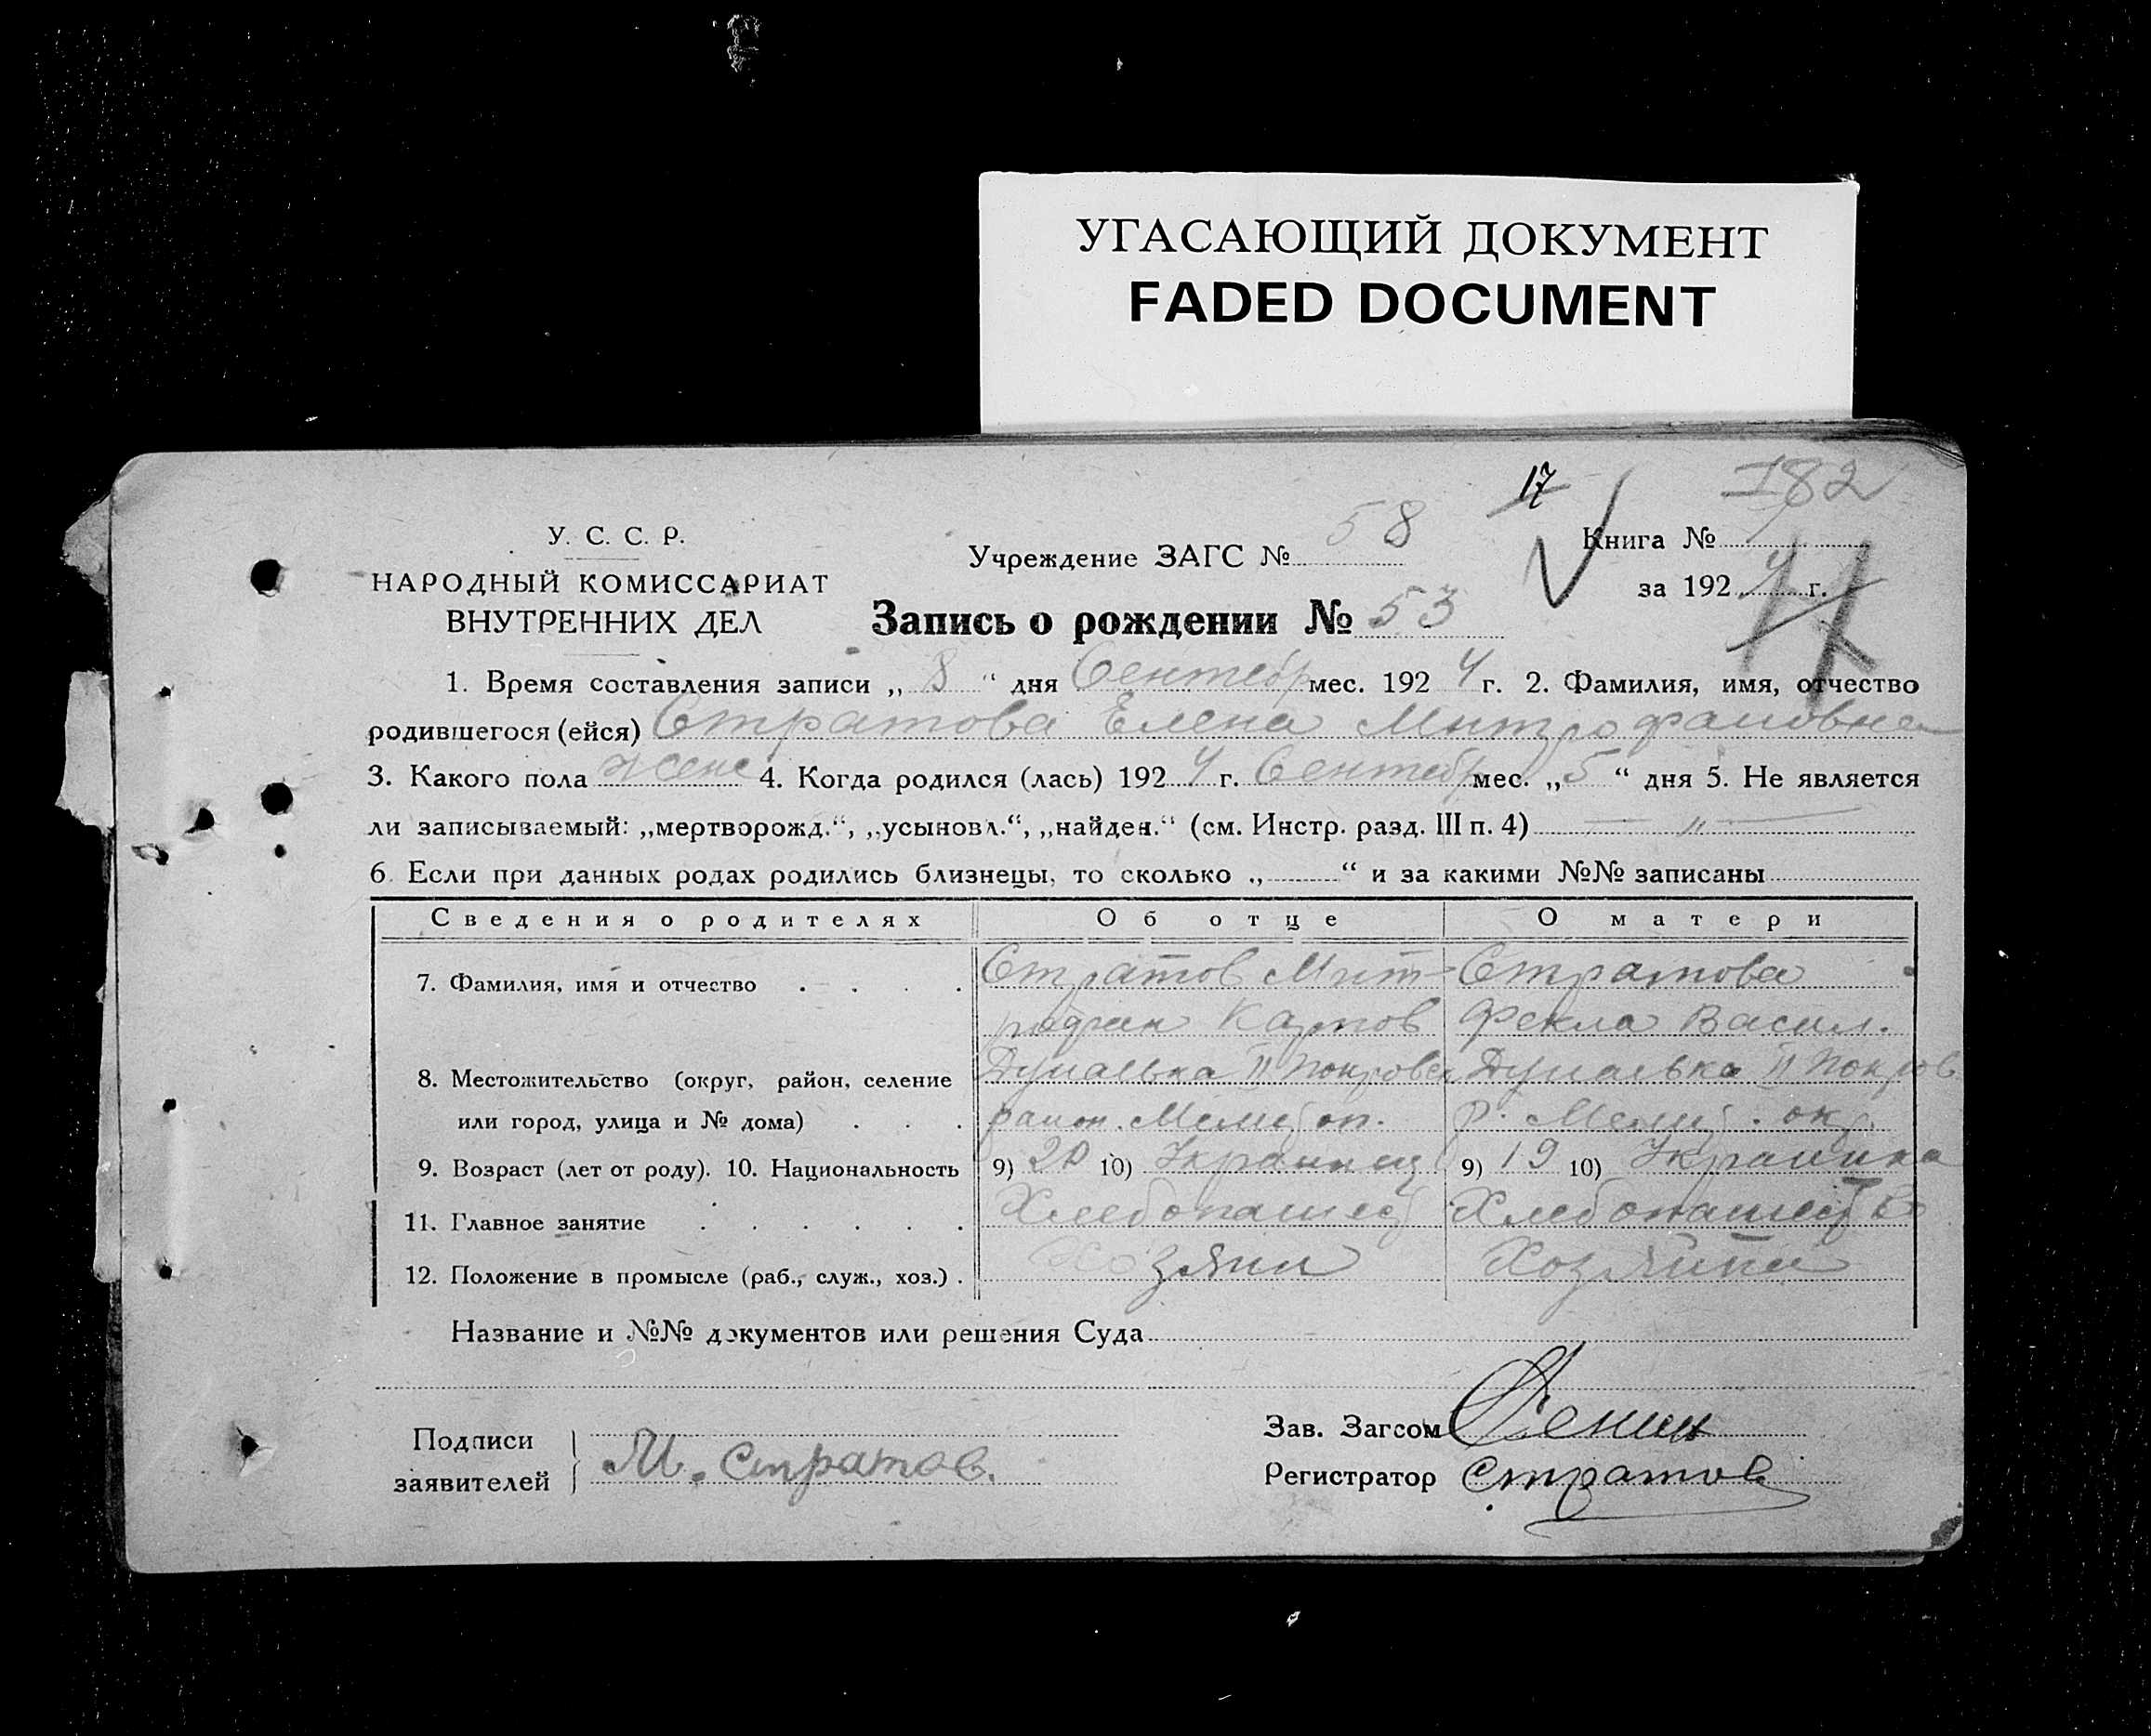 УГАСАЮЩИЙ ДОКУМЕНТ
FADED DOCUMENT
17
182
У. С. С. Р.
НАРОДНЫЙ КОМИССАРИАТ
ВНУТРЕННИХ ДЕЛ
Учреждение ЗАГС № 58
Книга № 1
за 1924 г.
Запись о рождении № 53
1. Время составления записи „ 8 “ дня Сентебр мес. 1924 г. 2. Фамилия, имя, отчество
родившегося (ейся) Стратова Елена Митрофановна
3. Какого пола женс 4. Когда родился (лась) 1924 г. Сентебр мес. „ 5 “ дня 5. Не является
ли записываемый: „мертворожд.“, „усыновл.“, „найден.“ (см. Инстр. разд. III п. 4) — „ —
6. Если при данных родах родились близнецы, то сколько „ “ и за какими №№ записаны
Сведения о родителях Об отце О матери
7. Фамилия, имя и отчество Стратов Мит- Стратова
рофан Карпов Фекла Васил.
8. Местожительство (округ, район, селение Дунаевка II Покровск Дунаевка II Покров
или город, улица и № дома) район. Мелит оп. р. Мелит. окр.
9. Возраст (лет от роду). 10. Национальность 9) 20 10) Украинец 9) 19 10) Украинка
11. Главное занятие Хлебопашец Хлебопашец
12. Положение в промысле (раб., служ., хоз.) Хозяин Хозяйка
Название и №№ документов или решения Суда
Подписи
заявителей М. Стратов.
Зав. Загсом
Регистратор Стратов